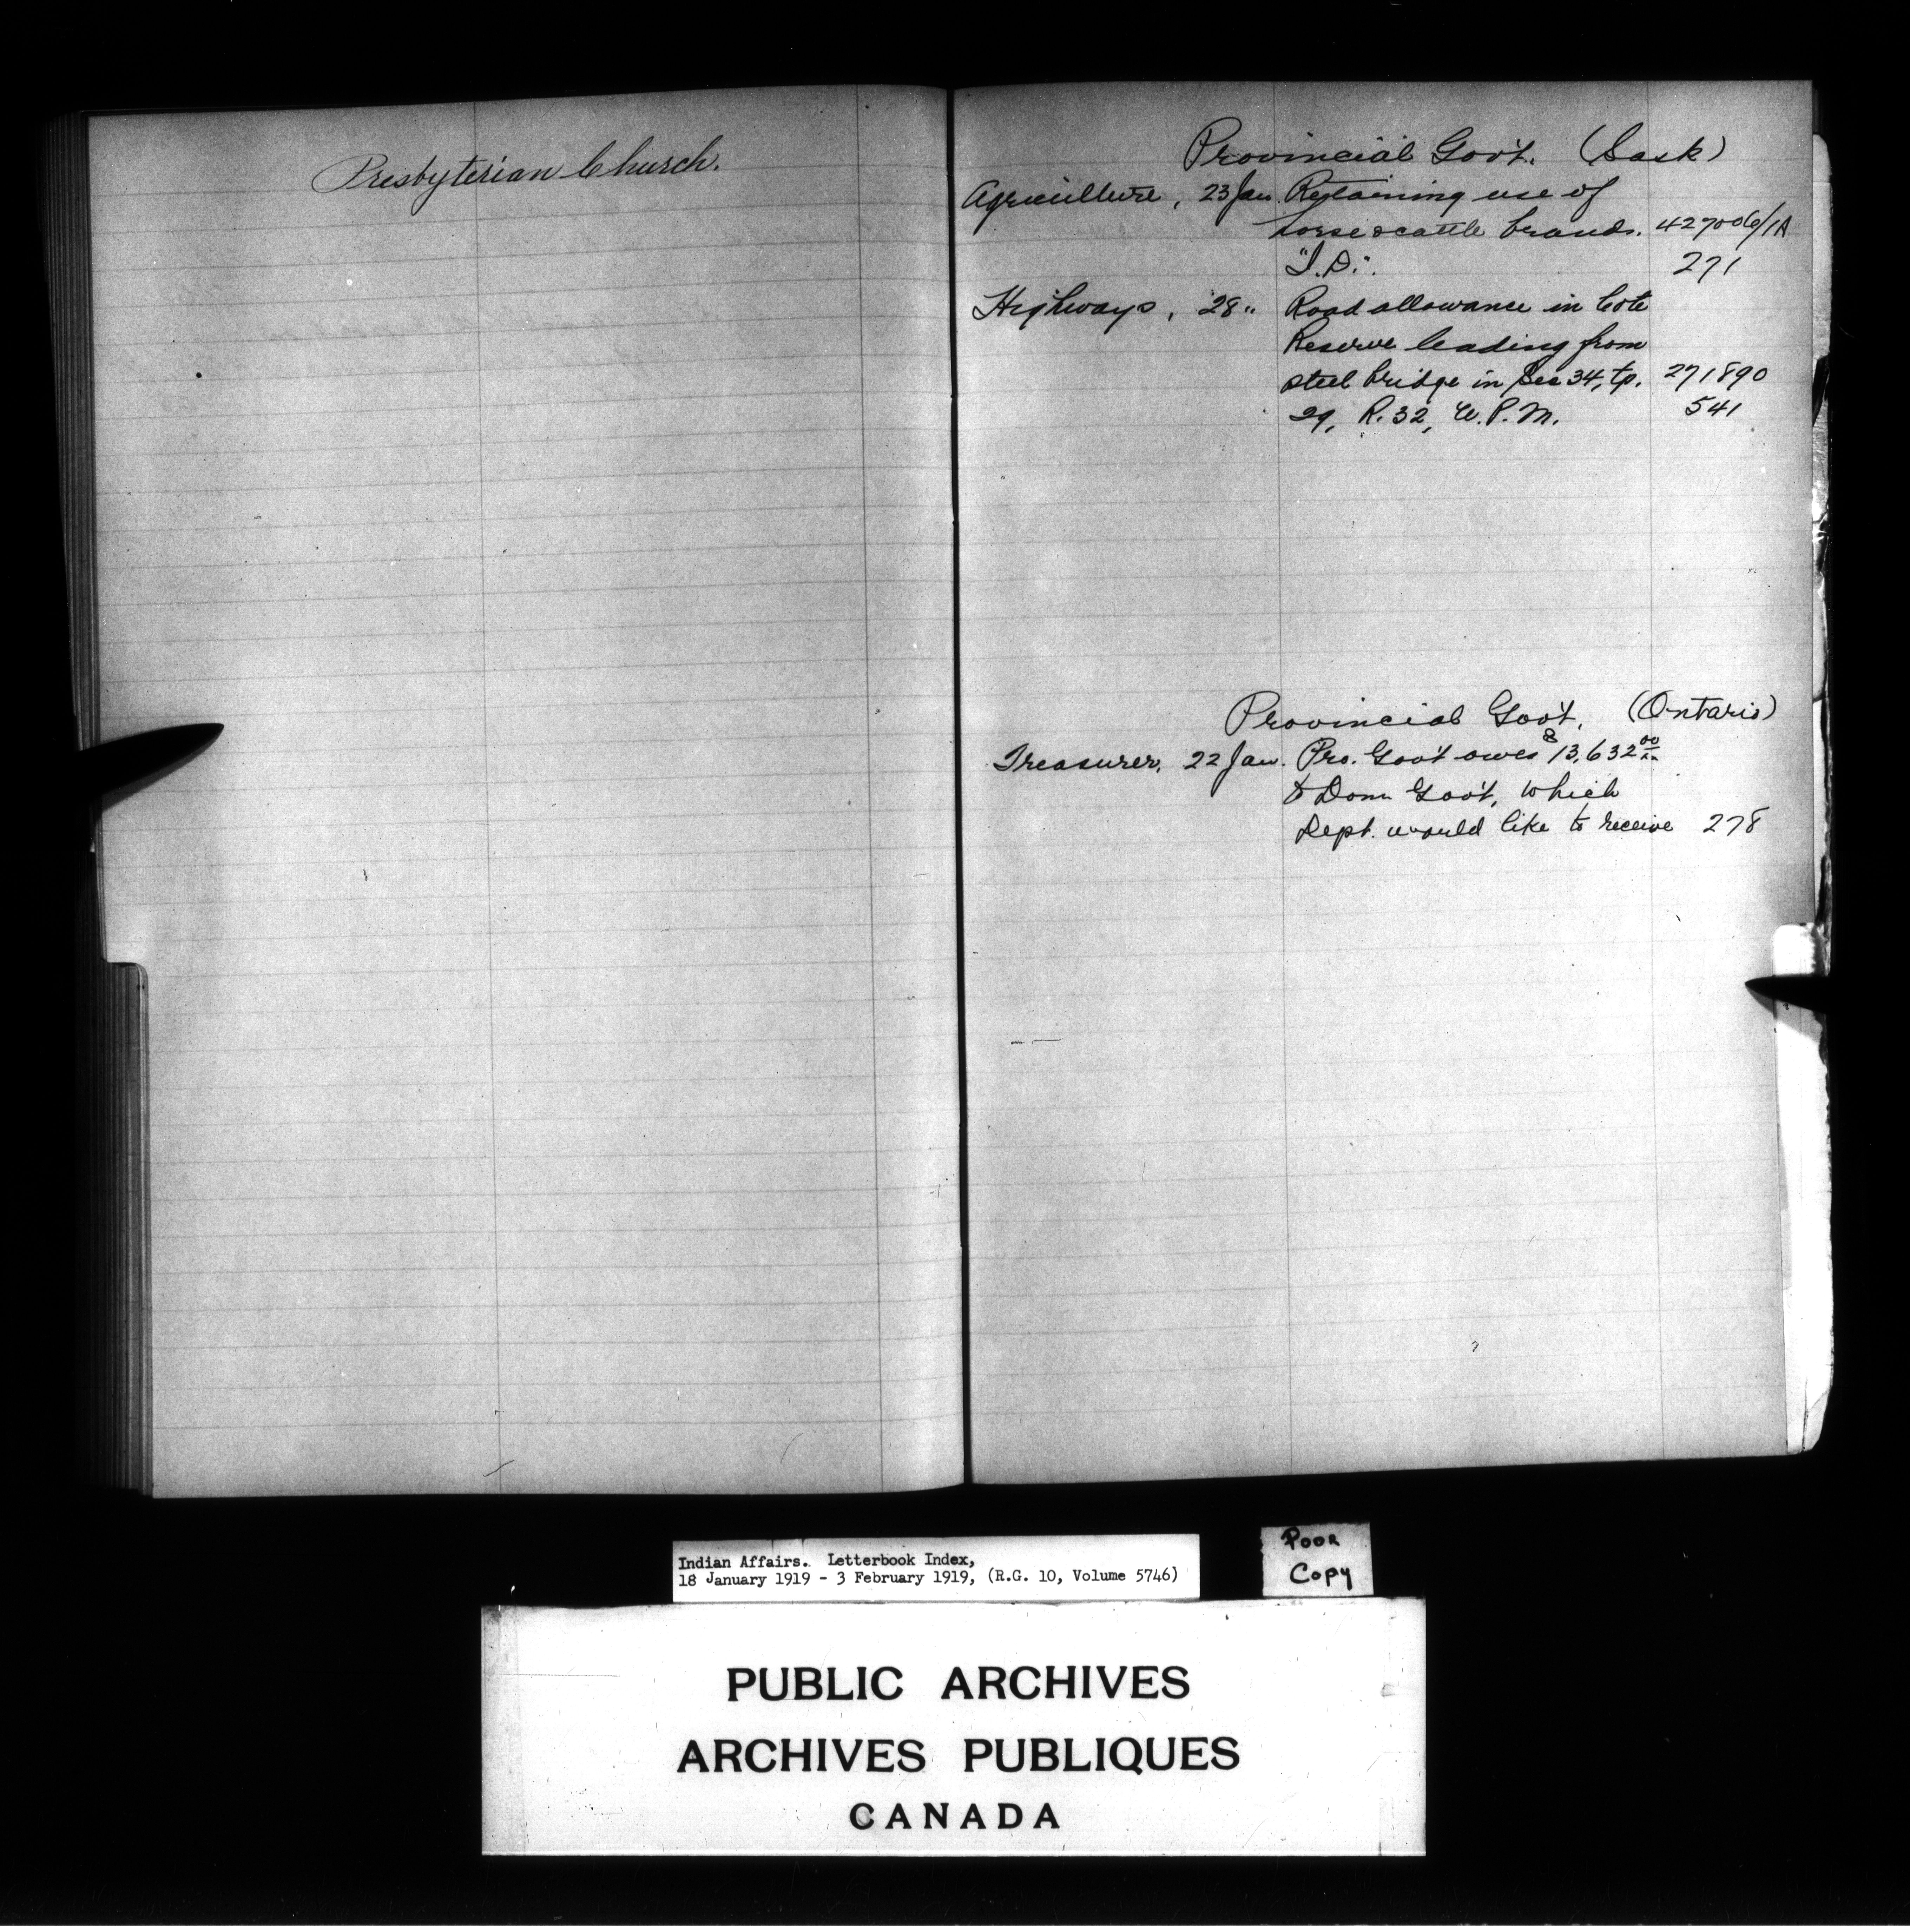 Presbyterian Church.
Provincial Gov't. (Sask)
Agriculture, 23 Jan. Retaining use of
horse & cattle brands. 427006/1A
"I.D.". 271
Highways, 28 " Road allowance in Cote
Reserve leading from
steel bridge in Sec 34, tp. 271890
29, R. 32, W.P.M. 541
Provincial Gov't. (Ontario)
Treasurer, 22 Jan. Pro. Gov't owes $13,632.00
to Dom Gov't, which
Dept. would like to receive 278
Indian Affairs. Letterbook Index,
18 January 1919 - 3 February 1919, (R.G. 10, Volume 5746)
Poor
Copy
PUBLIC ARCHIVES
ARCHIVES PUBLIQUES
CANADA